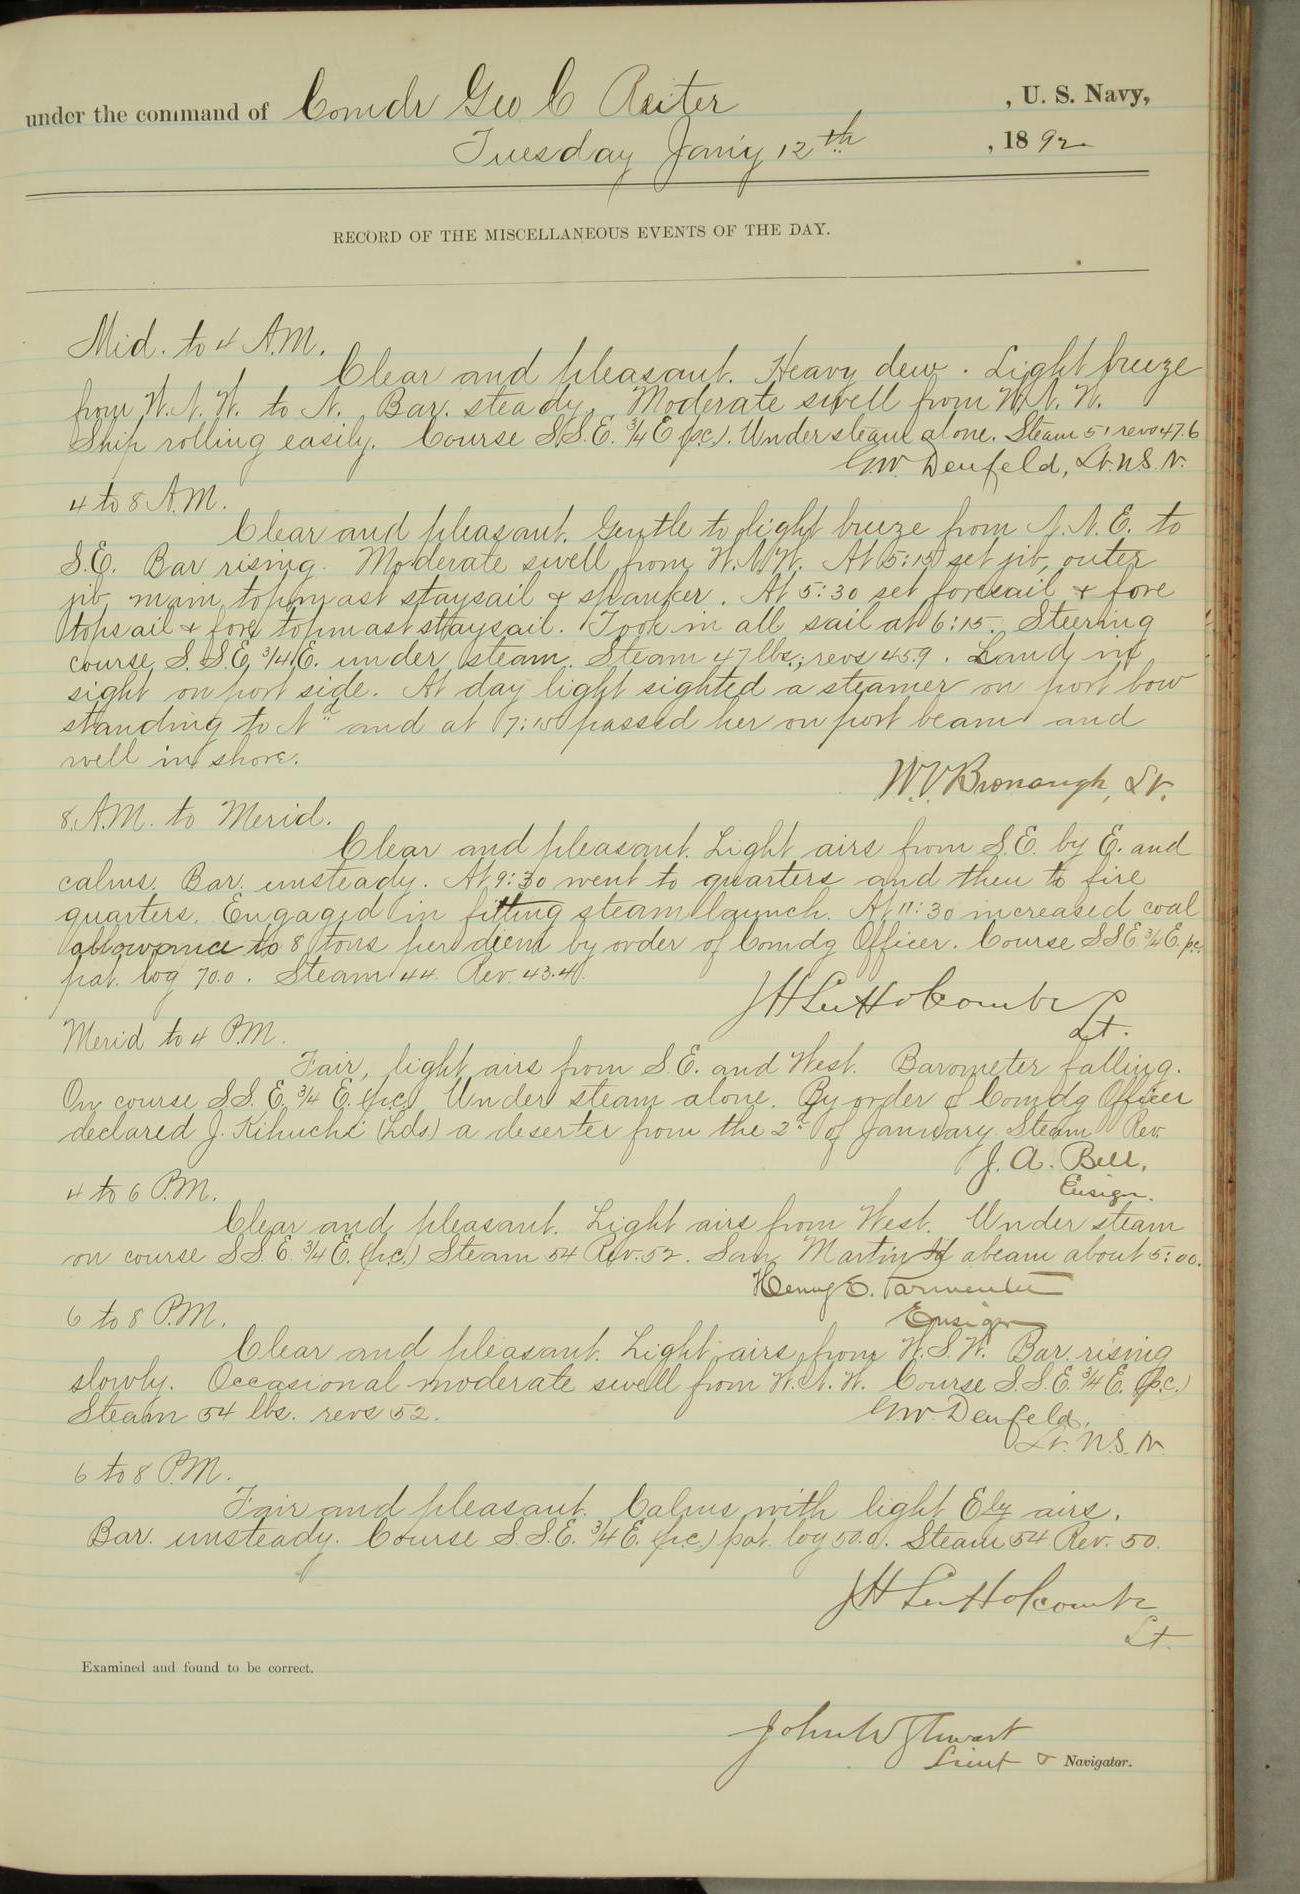 under the command of Comdr Geo C Reiter , U. S. Navy,
Tuesday Jan'y 12th , 1892
RECORD OF THE MISCELLANEOUS EVENTS OF THE DAY.
Mid. to 4 A.M.
Clear and pleasant. Heavy dew. Light breeze
from W.N.W. to N. Bar. steady. Moderate swell from W.N.W.
Ship rolling easily. Course S.S.E. 3/4 E (p.c.). Under steam alone. Steam 51 revs 47.6
G.W. Denfeld, Lt. U.S.N.
4 to 8 A.M.
Clear and pleasant. Gentle to light breeze from N.N.E. to
S.E. Bar rising. Moderate swell from W.N.W. At 5:15 set jib, outer
jib, main topmast staysail & spanker. At 5:30 set foresail & fore
topsail & fore topmast staysail. Took in all sail at 6:15. Steering
course S.S.E. 3/4 E. under steam. Steam 47 lbs., revs 45.9. Land in
sight on port side. At day light sighted a steamer on port bow
standing to Nd and at 7:10 passed her on port beam and
well in shore.
W.V. Bronaugh, Lt.
8 A.M. to Merid.
Clear and pleasant. Light airs from S.E. by E. and
calms. Bar. unsteady. At 9:30 went to quarters and then to fire
quarters. Engaged in fitting steam launch. At 11:30 increased coal
allowance to 8 tons per diem by order of Comdg Officer. Course SSE 3/4 E. p.c.
pat. log 70.0. Steam 44. Rev. 43.4.
J H Lee Holcombe
Lt.
Merid to 4 P.M.
Fair, light airs from S.E. and West. Barometer falling.
On course S.S.E. 3/4 E. (p.c.) Under steam alone. By order of Comdg Officer
declared J. Kihuchi (Lds) a deserter from the 2d of January. Steam Rev.
J. A. Bell,
Ensign.
4 to 6 P.M.
Clear and pleasant. Light airs from West. Under steam
on course S.S.E. 3/4 E. (p.c.) Steam 54 Rev. 52. San Martin Id abeam about 5:00.
Henry E. Parmenter
Ensign
6 to 8 P.M.
Clear and pleasant. Light airs from W.S.W. Bar. rising
slowly. Occasional moderate swell from W.N.W. Course S.S.E. 3/4 E. (p.c.)
Steam 54 lbs. revs 52.
G.W. Denfeld,
Lt. U.S.N.
6 to 8 P.M.
Fair and pleasant. Calms with light Ely airs.
Bar. unsteady. Course S.S.E. 3/4 E. (p.c.) pat. log 50.0. Steam 54 Rev. 50.
J H Lee Holcombe
Lt.
Examined and found to be correct.
John W Stewart
Lieut & Navigator.